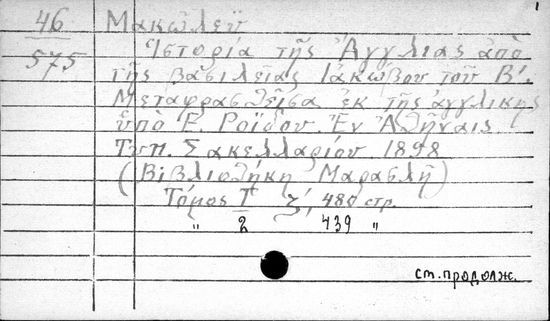 1
46
575
Μακώλεϋ
Ἱστορία τῆς Ἀγγλίας ἀπὸ
τῆς βασιλείας Ἰακώβου τοῦ Β'.
Μεταφρασθεῖσα ἐκ τῆς ἀγγλικῆς
ὑπὸ Ε. Ροΐδου. Ἐν Ἀθήναις
Τυπ. Σακελλαρίου 1898
(Βιβλιοθήκη Μαρασλῆ)
Τόμος 1 480 стр.
" 2 439 "
ст. продолж.